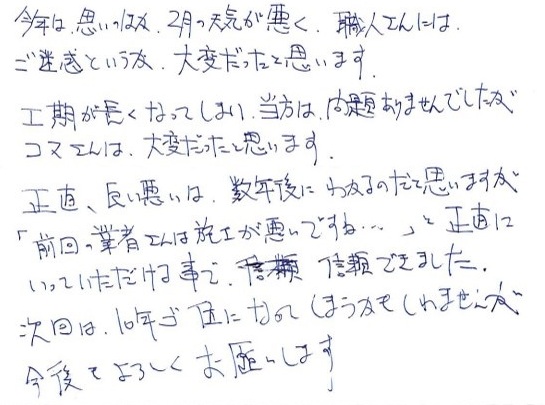 今年は、思いのほか、2月の天気が悪く、職人さんには、
ご迷惑というか、大変だったと思います。
工期が長くなってしまい、当方は、問題ありませんでしたが
コスモさんは、大変だったと思います。
正直、良い悪いは、数年後にわかるのだと思いますが
「前回の業者さんは施工が悪いですね…」と正直に
いっていただける事で、信頼できました。
次回は、10年ご になってしまうかもしれませんが
今後もよろしくお願いします